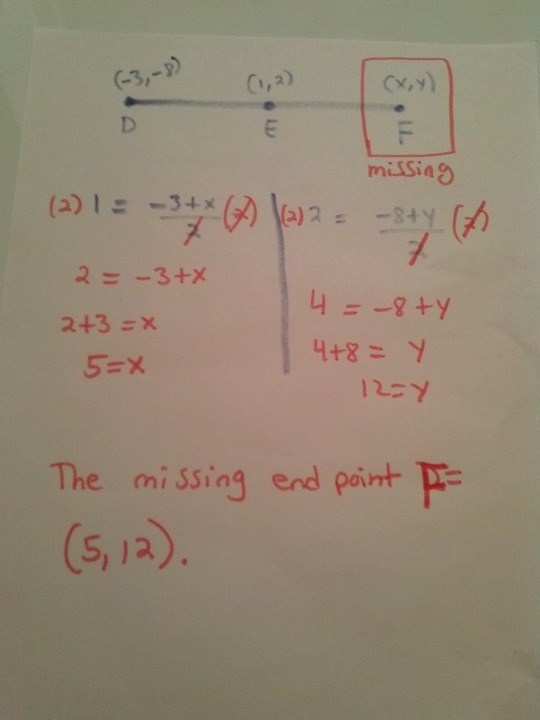 (-3,-8) (1,2) (x,y)
D E F
missing
(2) 1 = -3+x/2 (2) (2) 2 = -8+y/2 (2)
2 = -3+x
4 = -8+y
2+3=x
4+8= y
5=x
12=y
The missing end point F=
(5,12).